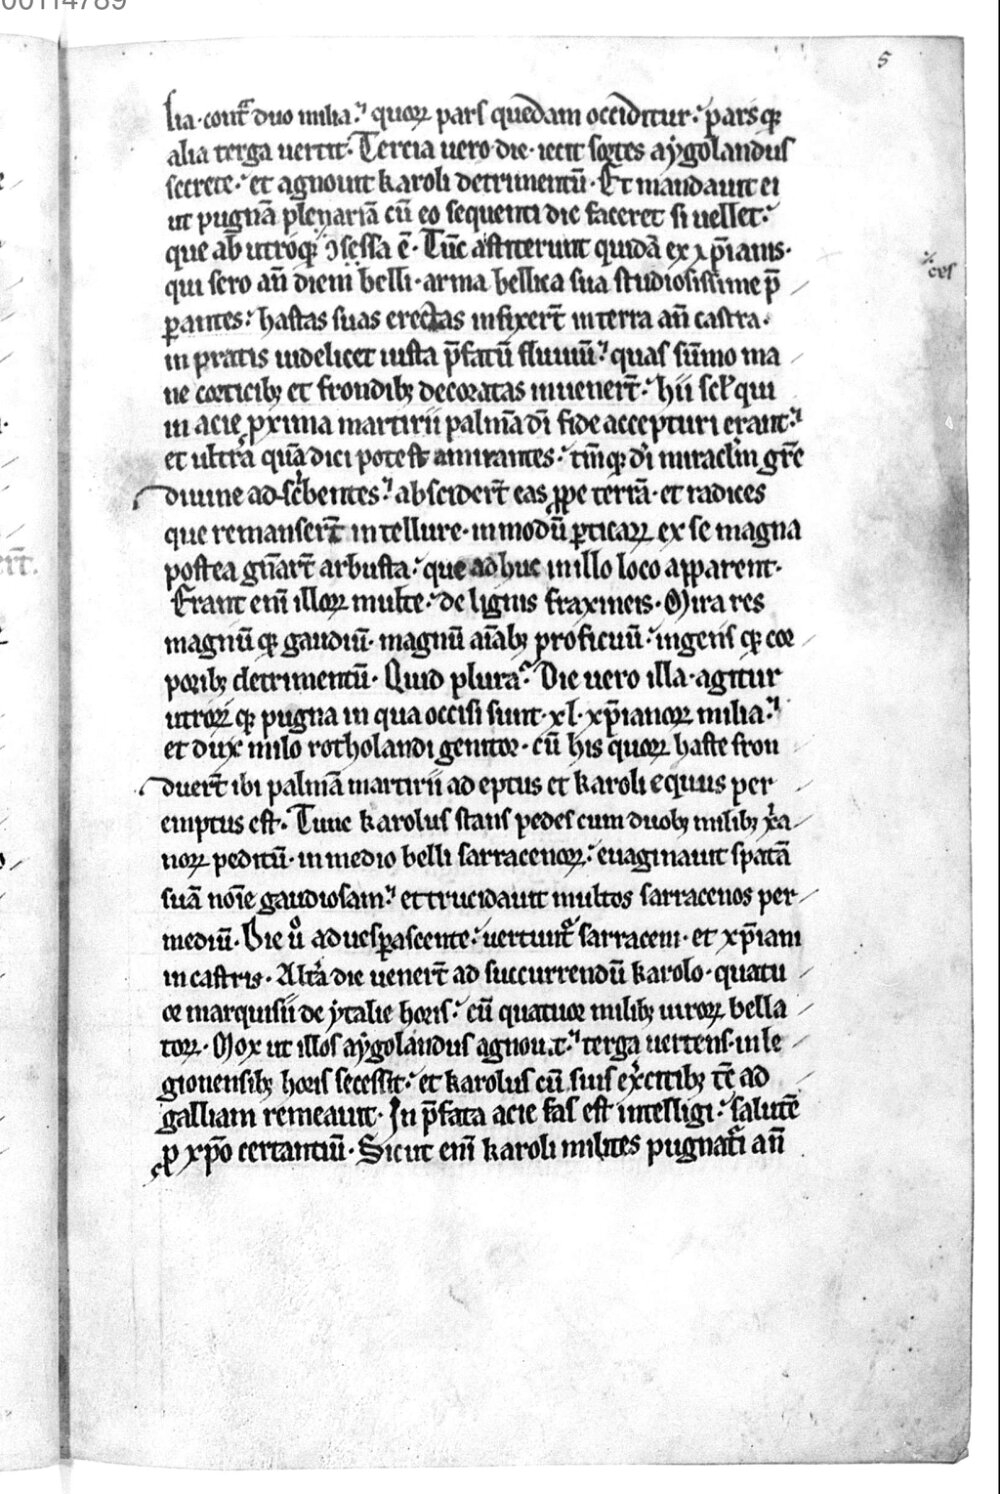 00114789
5
lia·cont̃ᵃ duo milia.' quoꝝ pars quedam occiditur.' parsqꝫ
alia terga uertit. Tercia uero·die·iecit sortes aẏgolandus
secrete.' et agnouit karoli detrimentū· Et mandauit ei
ut pugnā plenariā cū eo sequenti die faceret si uellet.'
que ab utroqꝫ ↄsessa ē· Tūc astiterunt quidā ex xp̄ianis·
qui sero an̄ diem belli·arma bellica sua studiosissime p̄
ꝑantes.' hastas suas erectas infixer̄t in terra an̄ castra·
in pratis uidelicet iusta p̄fatū fluuiū.' quas sūmo ma
ne corticibꝫ et frondibꝫ decoratas inuener̄t.' hii scł qui
in acie ꝓxima martirii palmā dī fide accepturi erant.'
et ultᵃ quā dici potest amirantes.' tm̄qꝫ dī miraclm̄ gr̄e
diuine ad·sc̄bentes.' absciderr̄t eas ꝓpe terrā· et radices
que remanser̄t in tellure· in modū ꝑticaꝝ ex se magna
postea gn̄ar̄t arbusta.' que adhuc in illo loco apparent·
Erant enī illoꝝ multe.' de lignis fraxineis· Mira res
magnū qꝫ gaudiū· magnū aīabꝫ proficuū.' ingens qꝫ cor
poribꝫ detrimentū· Quid plura.' Die uero illa·agitur
utroꝝ qꝫ pugna in qua occisi sunt·xl·xp̄ianoꝝ milia.'
et dux milo rotholandi genitor· cū his quoꝝ haste fron
duer̄t ibi palmā martirii ad eptus et karoli equus per
emptus est· Tunc karolus stans pedes cum duobꝫ milibꝫ xᵖ̄ia
noꝝ peditū· in medio belli sarracenoꝝ.' euaginauit spatā
suā noīe gaudiosam.' et trucidauit multos sarracenos per
mediū· Die ů aduesꝑascente.' uertunt̃ sarraceni· et xp̄iani
in castris· Altᵃ die uener̄t ad succurrendū karolo· quatu
or marquisii de ẏtalie horis.' cū quatuor milibꝫ uiroꝝ bella
toꝝ· Mox ut illos aẏgolandus agnouit.' terga uertens·in le
gionensibꝫ horis secessit.' et karolus cū suis ex̄citibꝫ tc̄ ad
galliam remeauit· In p̄fata acie fas est intelligi.' salutē
ꝓ xp̄o certantiū· Sicut enī karoli milites pugnatᵘⁱ an̄
⁒
ces